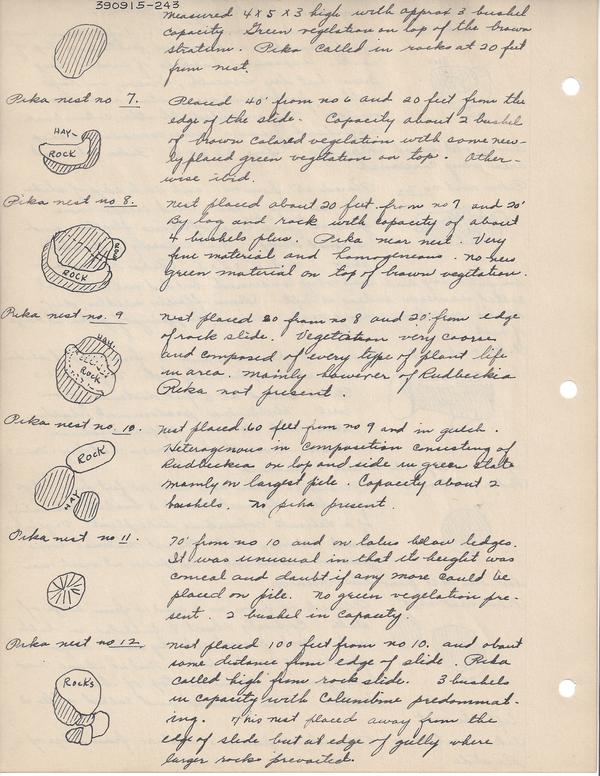 390915-243
measured 4 x 5 x 3 high with approx 3 bushel
capacity. Green vegetation on top of the brown
stratum. Pika called in rocks at 20 feet
from nest.
Pika nest no 7.
Placed 40' from no 6 and 20 feet from the
edge of the slide. Capacity about 2 bushel
of brown colored vegetation with some new-
ly placed green vegetation on top. Other-
wise ibid.
HAY
ROCK
Pika nest no 8.
nest placed about 20 feet from no 7 and 20'
By log and rock with capacity of about
4 bushels plus. Pika near nest. Very
fine material and homogeneous. no new
green material on top of brown vegetation.
ROCK
ROCK
Pika nest no. 9
nest placed 20 from no 8 and 20' from edge
of rock slide. Vegetation very coarse
and composed of every type of plant life
in area. mainly however of Rudbeckia
Pika not present.
HAY
ROCK
Pika nest no. 10.
nest placed 60 feet from no 9 and in gulch.
Heterogenous in composition consisting of
Rudbeckia on top and side in green state
mainly on largest pile. Capacity about 2
bushels. No pika present.
ROCK
HAY
Pika nest no 11.
70' from no 10 and on talus below ledges.
It was unusual in that its height was
conical and doubt if any more could be
placed on pile. No green vegetation pre-
sent. 2 bushel in capacity.
Pika nest no 12.
nest placed 100 feet from no 10. and about
same distance from edge of slide. Pika
called high from rock slide. 3 bushels
in capacity with Columbine predominat-
ing. This nest placed away from the
edge of slide but at edge of gully where
larger rocks prevailed.
ROCKS